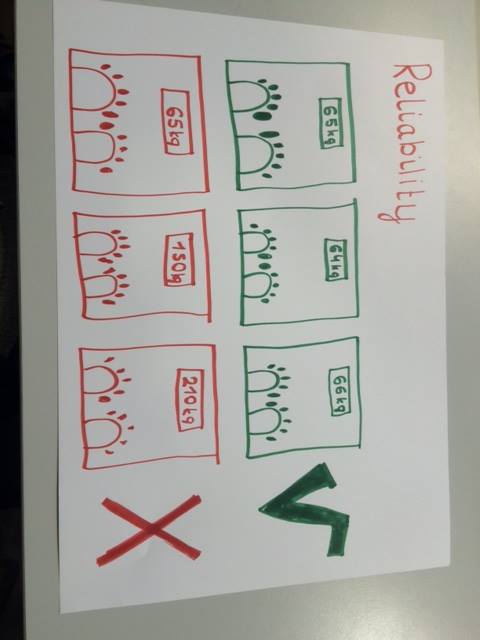 Reliability
65kg
64kg
66kg
65kg
150kg
210kg